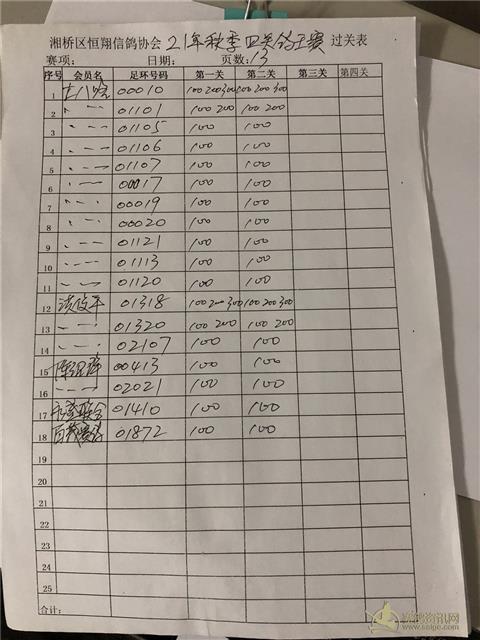 湘桥区恒翔信鸽协会 21年秋季四关鸽王赛 过关表
赛项: 日期: 页数: 13
序号 会员名 足环号码 第一关 第二关 第三关 第四关
1 00010 100 200 300 100 200 300
2 〃 — 〃 01101 100 200 100 200
3 〃 — 〃 01105 100 100
4 〃 — 〃 01106 100 100
5 〃 — 〃 01107 100 100
6 〃 — 〃 00017 100 100
7 〃 — 〃 00019 100 100
8 〃 — 〃 00020 100 100
9 〃 — 〃 01121 100 100
10 〃 — 〃 01113 100 100
11 〃 — 〃 01120 100 100
12 01318 100 200 300 100 200 300
13 〃 — 〃 01320 100 200 100 200
14 〃 — 〃 02107 100 100
15 00413 100 100
16 〃 — 〃 02021 100 100
17 01410 100 100
18 01872 100 100
19
20
21
22
23
24
25
合计:
www.saige.com